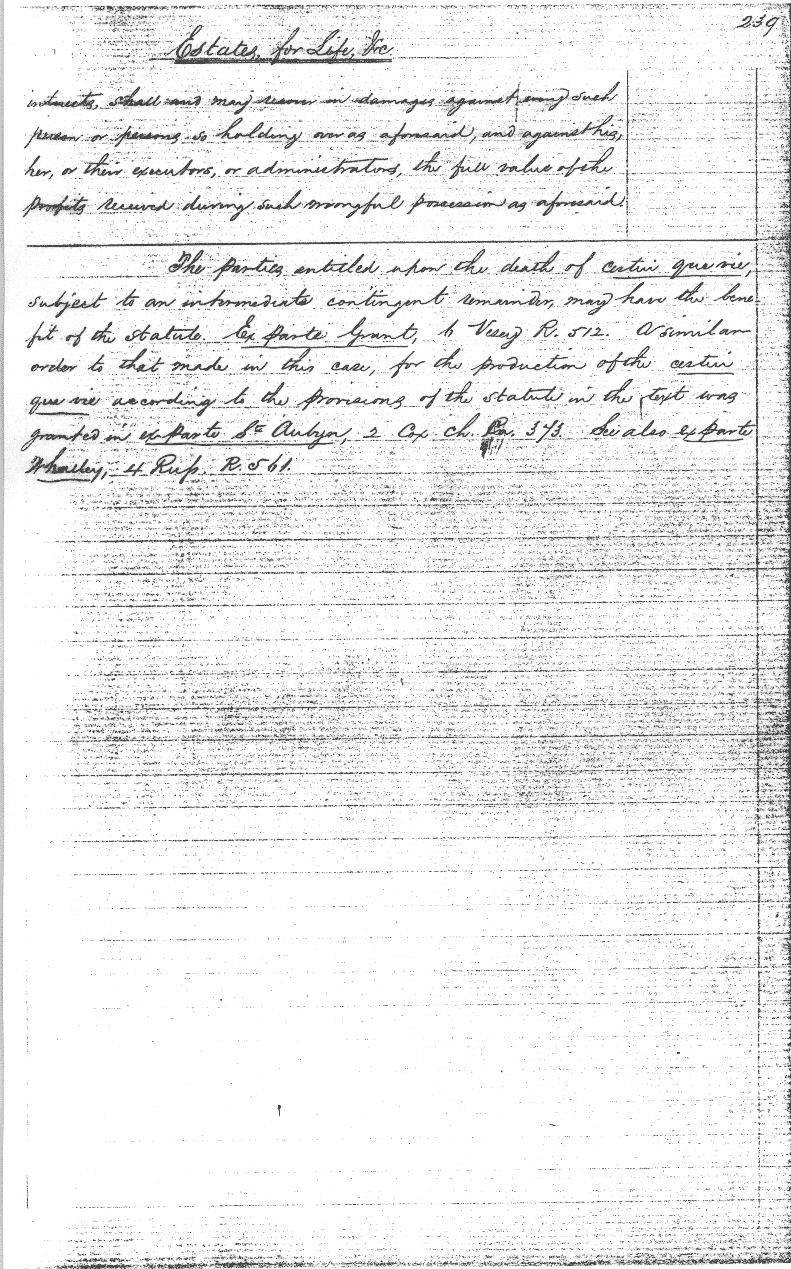 239
Estates for Life, &c
interests, shall and may recover in damages against every such
person or persons so holding over as aforesaid, and against his,
her, or their executors, or administrators, the full value of the
profits received during such wrongful possession as aforesaid.
The parties entitled upon the death of cestui que vie,
subject to an intermediate contingent remainder, may have the bene-
fit of the statute. Ex parte Grant, 6 Vesey R. 512. A similar
order to that made in this case, for the production of the cestui
que vie according to the provisions of the statute in the text was
granted in ex parte St Aubyn, 2 Cox Ch. Ca. 373. See also ex parte
Whalley, 4 Russ. R. 561.